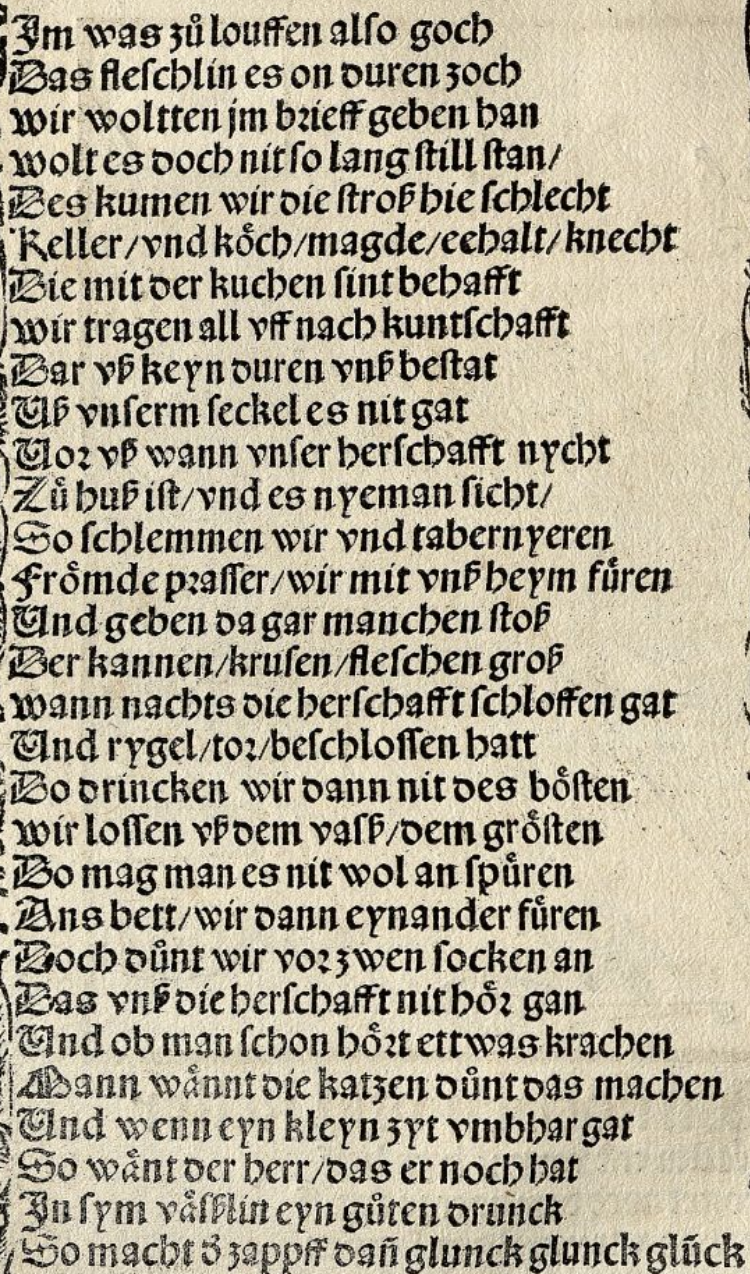 Im was zů louffen also goch
Das fleschlin es on duren zoch
Wir woltten jm brieff geben han
Wolt es doch nit so lang still stan/
Des kumen wir die stroß hie schlecht
Keller/vnd kôch/magde/eehalt/knecht
Die mit der kuchen sint behafft
Wir tragen all vff nach kuntschafft
Dar vß keyn duren vnß bestat
Uß vnserm seckel es nit gat
Vor vß wann vnser herschafft nycht
Zů huß ist/vnd es nyeman sicht/
So schlemmen wir vnd tabernyeren
Frômde prasser/wir mit vnß heym fůren
Und geben da gar manchen stoß
Der kannen/krusen/fleschen groß
Wann nachts die herschafft schloffen gat
Und rygel/tor/beschlossen hatt
Do drincken wir dann nit des bôsten
Wir lossen vß dem vasß/dem grôsten
Do mag man es nit wol an spůren
Ans bett/wir dann eynander fůren
Doch důnt wir vor zwen socken an
Das vnß die herschafft nit hôr gan
Und ob man schon hôrt ettwas krachen
Mann wånnt die katzen důnt das machen
Und wenn eyn kleyn zyt vmbhar gat
So wånt der herr/das er noch hat
In sym våsßlin eyn gůten drunck
So macht ð zappff dañ glunck glunck glũck